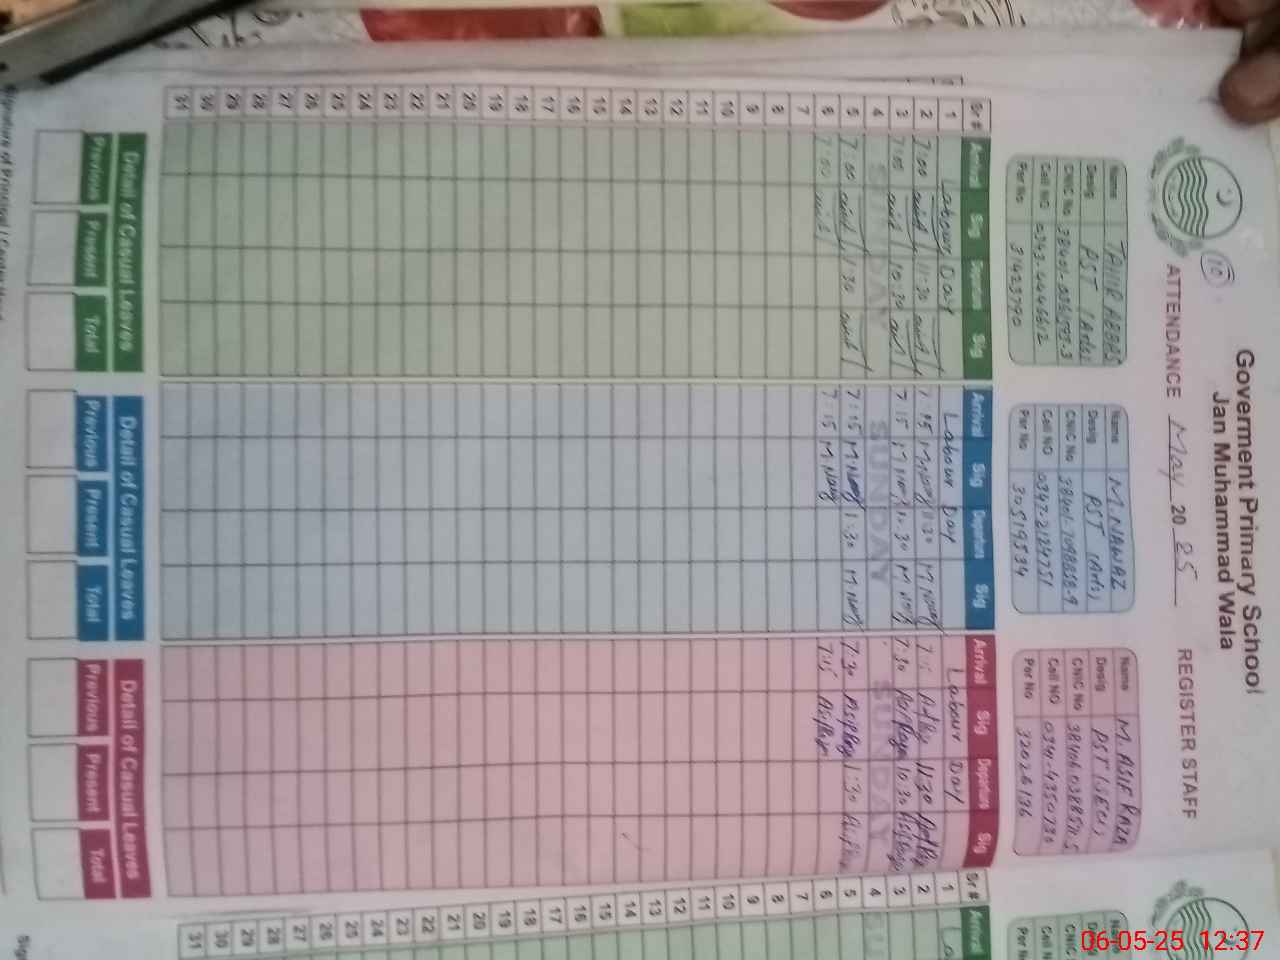 Goverment Primary School
Jan Muhammad Wala
10
ATTENDANCE May 2025 REGISTER STAFF
Name TAHIR ABBAS
Desig PST (Arts)
CNIC No
Cell NO
Per No 31423790
Name M.NAWAZ
Desig PST (Arts)
CNIC No
Cell NO 0347-2124751
Per No 30519534
Name M. ASIF RAZA
Desig PST (SECS)
CNIC No
Cell NO
Per No
Sr # Arrival Sig Departure Sig Arrival Sig Departure Sig Arrival Sig Departure Sig Sr #
1 Labour Day Labour Day Labour Day 1
2 7:00 11:30 7:15 M Nawaz 11:30 M Nawaz 11:30 2
3 7:00 10:30 7:15 M Nawaz 10:30 M Nawaz 7:30 10:30 3
4 SUNDAY SUNDAY SUNDAY 4
5 7:00 1:30 7:15 M Nawaz 1:30 M Nawaz 7:30 Asif Raza 1:30 Asif Raza 5
6 7:00 7:15 M Nawaz 7:15 Asif Raza 6
7 7
8 8
9 9
10 10
11 11
12 12
13 13
14 14
15 15
16 16
17 17
18 18
19 19
20 20
21 21
22 22
23 23
24 24
25 25
26 26
27 27
28 28
29 29
30 30
31 31
Detail of Casual Leaves Detail of Casual Leaves Detail of Casual Leaves
Previous Present Total Previous Present Total Previous Present Total
Signature of Principal
06-05-25 12:37